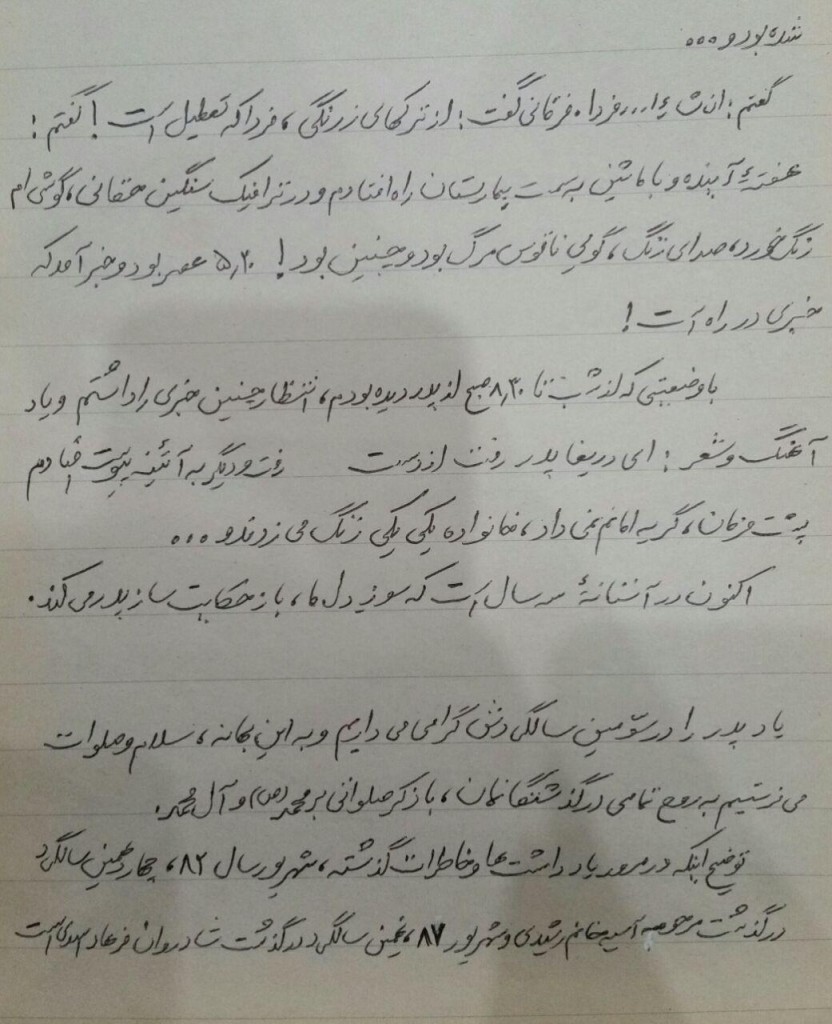 شده بود و ...
گفتم: ان شاءا... فردا. فرقانی گفت: از ترکهای زرنگی، فردا که تعطیل است! گفتم:
هفتهٔ آینده و با ماشین به سمت بیمارستان راه افتادم و در ترافیک سنگین حقانی، گوشی ام
زنگ خورد، صدای زنگ، گویی ناقوس مرگ بود و چنین بود! ۵٫۳۰ عصر بود و خبر آمد که
خبری در راه است!
با وضعیتی که از شب تا ۸٫۳۰ صبح از پدر دیده بودم، انتظار چنین خبری را داشتم و یاد
آهنگ و شعر: ای دریغا پدر رفت از دست رفت و دیگر به آئینه پیوست افتادم
پشت فرمان، گریه امانم نمی داد، خانواده یکی یکی زنگ می زدند و ...
اکنون در آستانهٔ سه سال است که سوز دل ما، باز حکایت ساز پدر می کند.
یاد پدر را در سومین سالگردش گرامی می داریم و به این بهانه، سلام و صلوات
می فرستیم به روح تمامی درگذشتگانمان، با ذکر صلواتی بر محمد(ص) و آل محمد.
توضیح اینکه در مرور یادداشت ها و خاطرات گذشته، شهریور سال ۸۲، چهاردهمین سالگرد
درگذشت مرحومه آسیه خانم رشیدی و شهریور ۸۷، نهمین سالگرد درگذشت شادروان فرهاد است